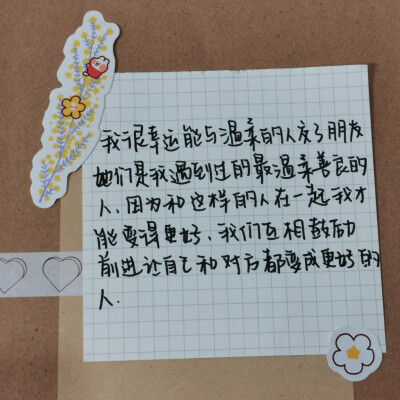 我很幸运能与温柔的人交了朋友
她们是我遇到过的最温柔善良的
人、因为和这样的人在一起我才
能变得更好、我们互相鼓励
前进让自己和对方都变成更好的
人.